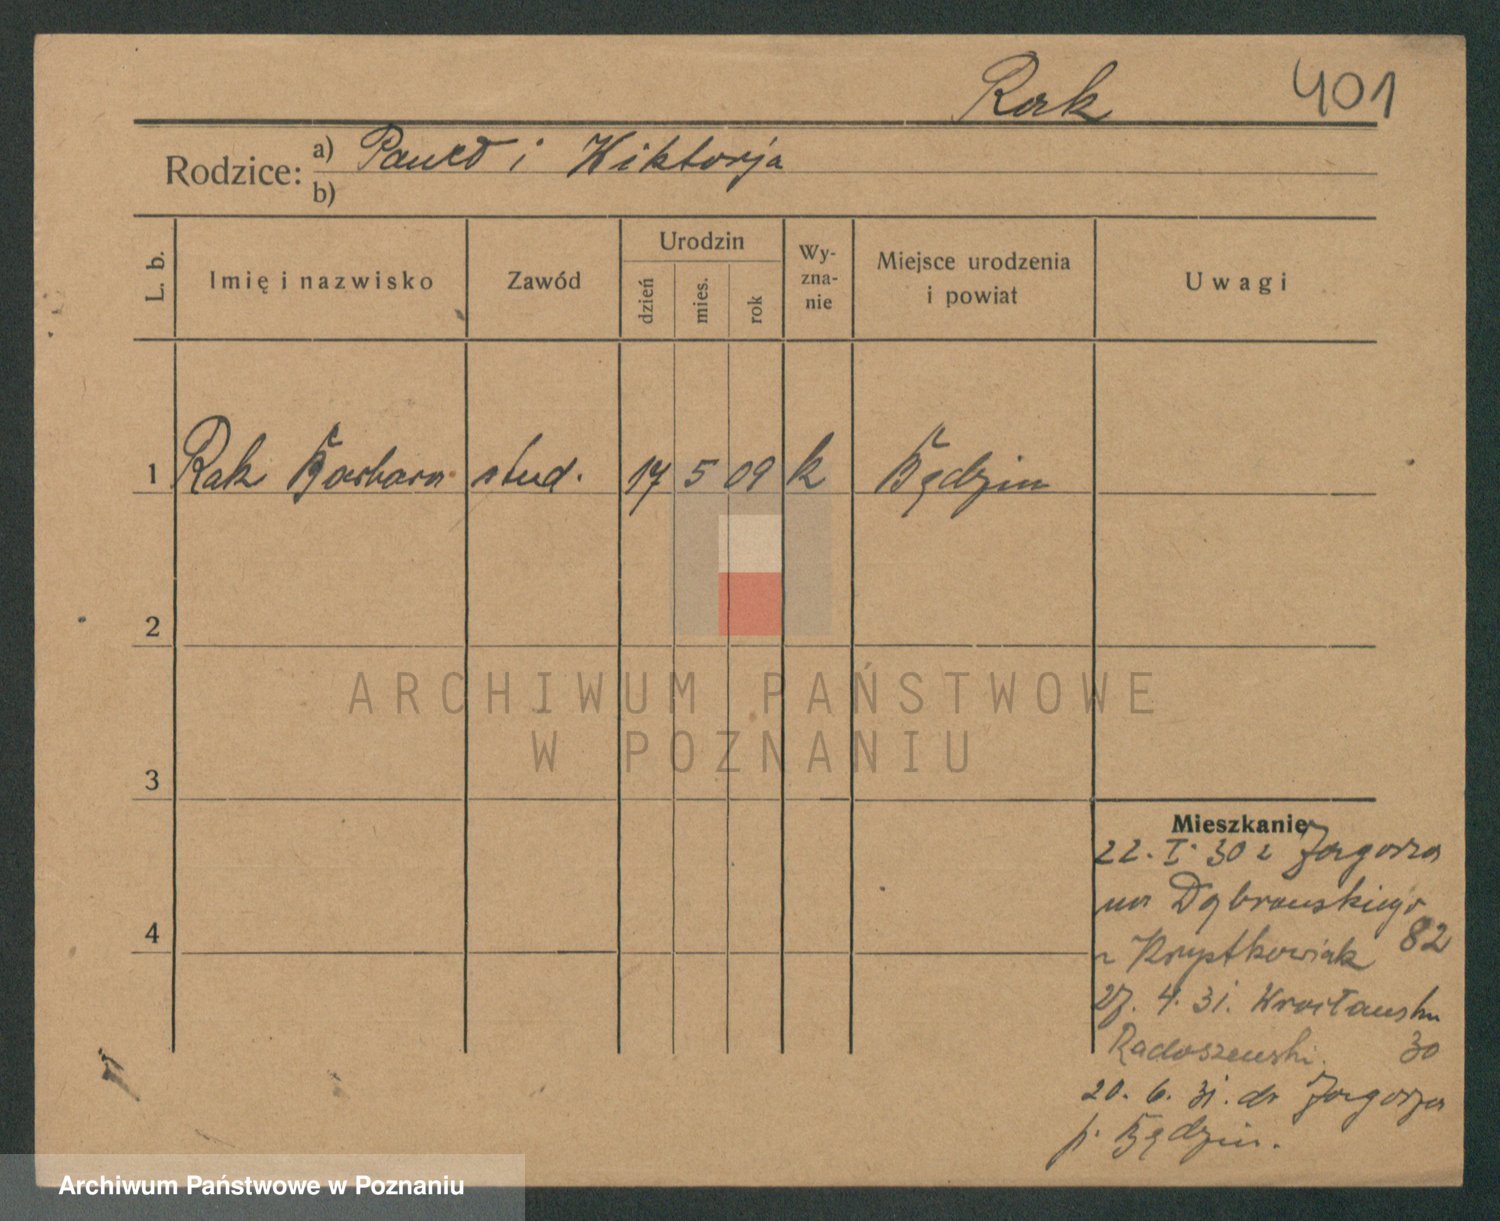 Rak 401
Rodzice: a) Paweł i Wiktorja
b)
L. b. Imię i nazwisko Zawód Urodzin dzień mies. rok Wy-zna-nie Miejsce urodzenia i powiat Uwagi
1 Rak Barbara stud. 17 5 09 k Będzin
2
ARCHIWUM PAŃSTWOWE
W POZNANIU
3
Mieszkanie
22. I. 30 z Zagórza
na Dąbrowskiego
82
4
u Krystkowiak
27. 4. 31. Wrocławska
Radoszewski. 30
20. 6. 31. do Zagórza
p. Będzin.
Archiwum Państwowe w Poznaniu